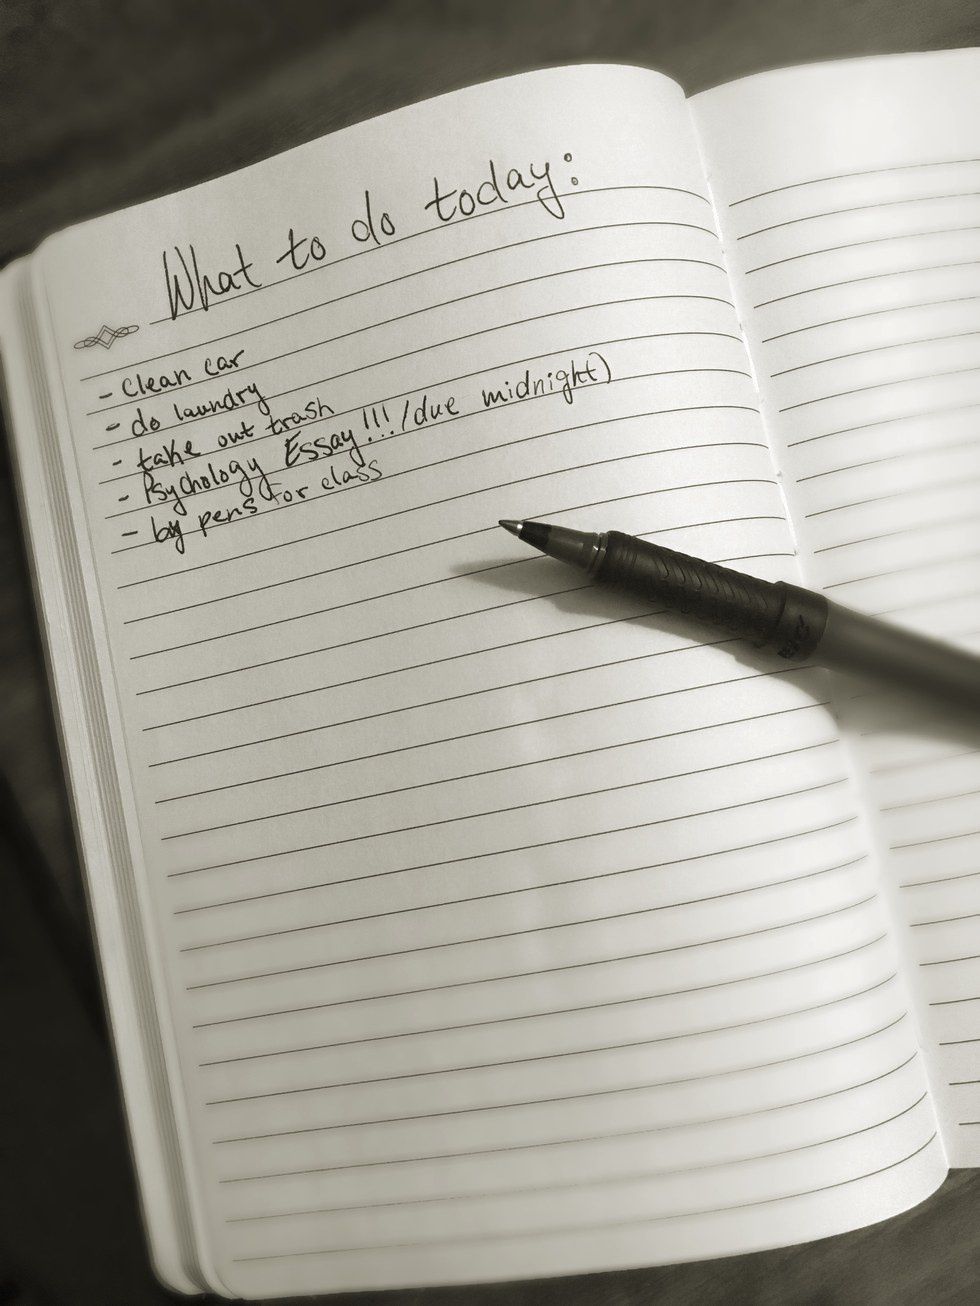 What to do today:
- Clean car
- do laundry
- take out trash
- Psychology Essay!!! (due midnight)
- by pens for class